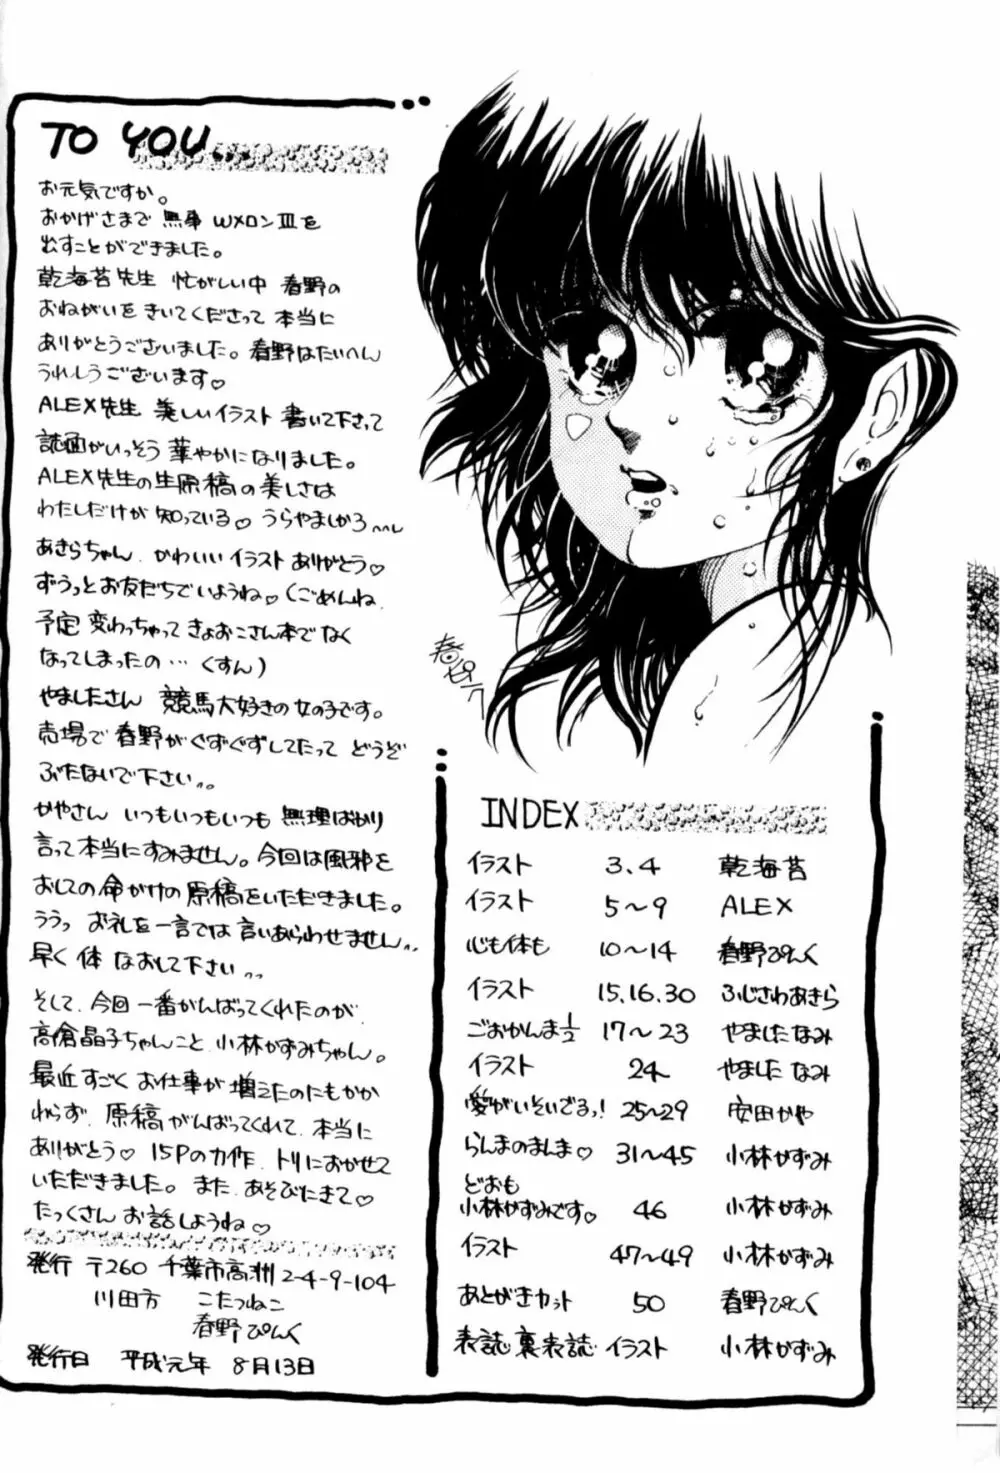 TO YOU...
お元気ですか。
おかげさまで 無事 Wメロン Ⅲを
出すことができました。
乾海苔先生 忙がしい中 春野の
おねがいを きいてくださって 本当に
ありがとうございました。春野はたいへん
うれしうございます♡
ALEX先生 美しいイラスト 書いて下さって
誌面がいっそう 華やかになりました。
ALEX先生の生原稿の美しさは
わたしだけが 知っている♡ うらやましかろ〜〜し
あきらちゃん、かわいい イラスト ありがとう♡
ずうっとお友だちでいようね♡(ごめんね、
予定 変わっちゃって きょおこさん本でなく
なってしまったの…くすん)
やましたさん 競馬大好きの女の子です。
売場で 春野がぐずぐずしてたって どうぞ
ぶたないで下さい、、
かやさん いつもいつもいつも 無理ばかり
言って本当にすみません。今回は風邪を
おしての命がけの原稿をいただきました。
ううっ お礼を一言では 言いあらわせません、、
早く 体 なおして下さい、、
そして、今回一番がんばってくれたのが、
高倉晶子ちゃんこと、小林かずみちゃん。
最近 すごく お仕事が 増えたのにもかか
わらず、原稿 がんばってくれて、本当に
ありがとう♡ 15Pの力作、トリにおかせて
いただきました。また、あそびにきて♡
たっくさん お話しようね♡
発行 〒260 千葉市高洲2-4-9-104
川田方 こたつねこ
春野ぴんく
発行日 平成元年 8月13日
INDEX
イラスト 3.4 乾海苔
イラスト 5〜9 ALEX
心も体も 10〜14 春野ぴんく
イラスト 15.16.30 ふじさわあきら
ごおかんま½ 17〜23 やましたなみ
イラスト 24 やました なみ
愛がいそいでるっ! 25〜29 安田かや
らんまのまんま♡ 31〜45 小林かずみ
どおも
小林かずみです♡ 46 小林かずみ
イラスト 47〜49 小林かずみ
あとがきカット 50 春野ぴんく
表誌 裏表誌 イラスト 小林かずみ